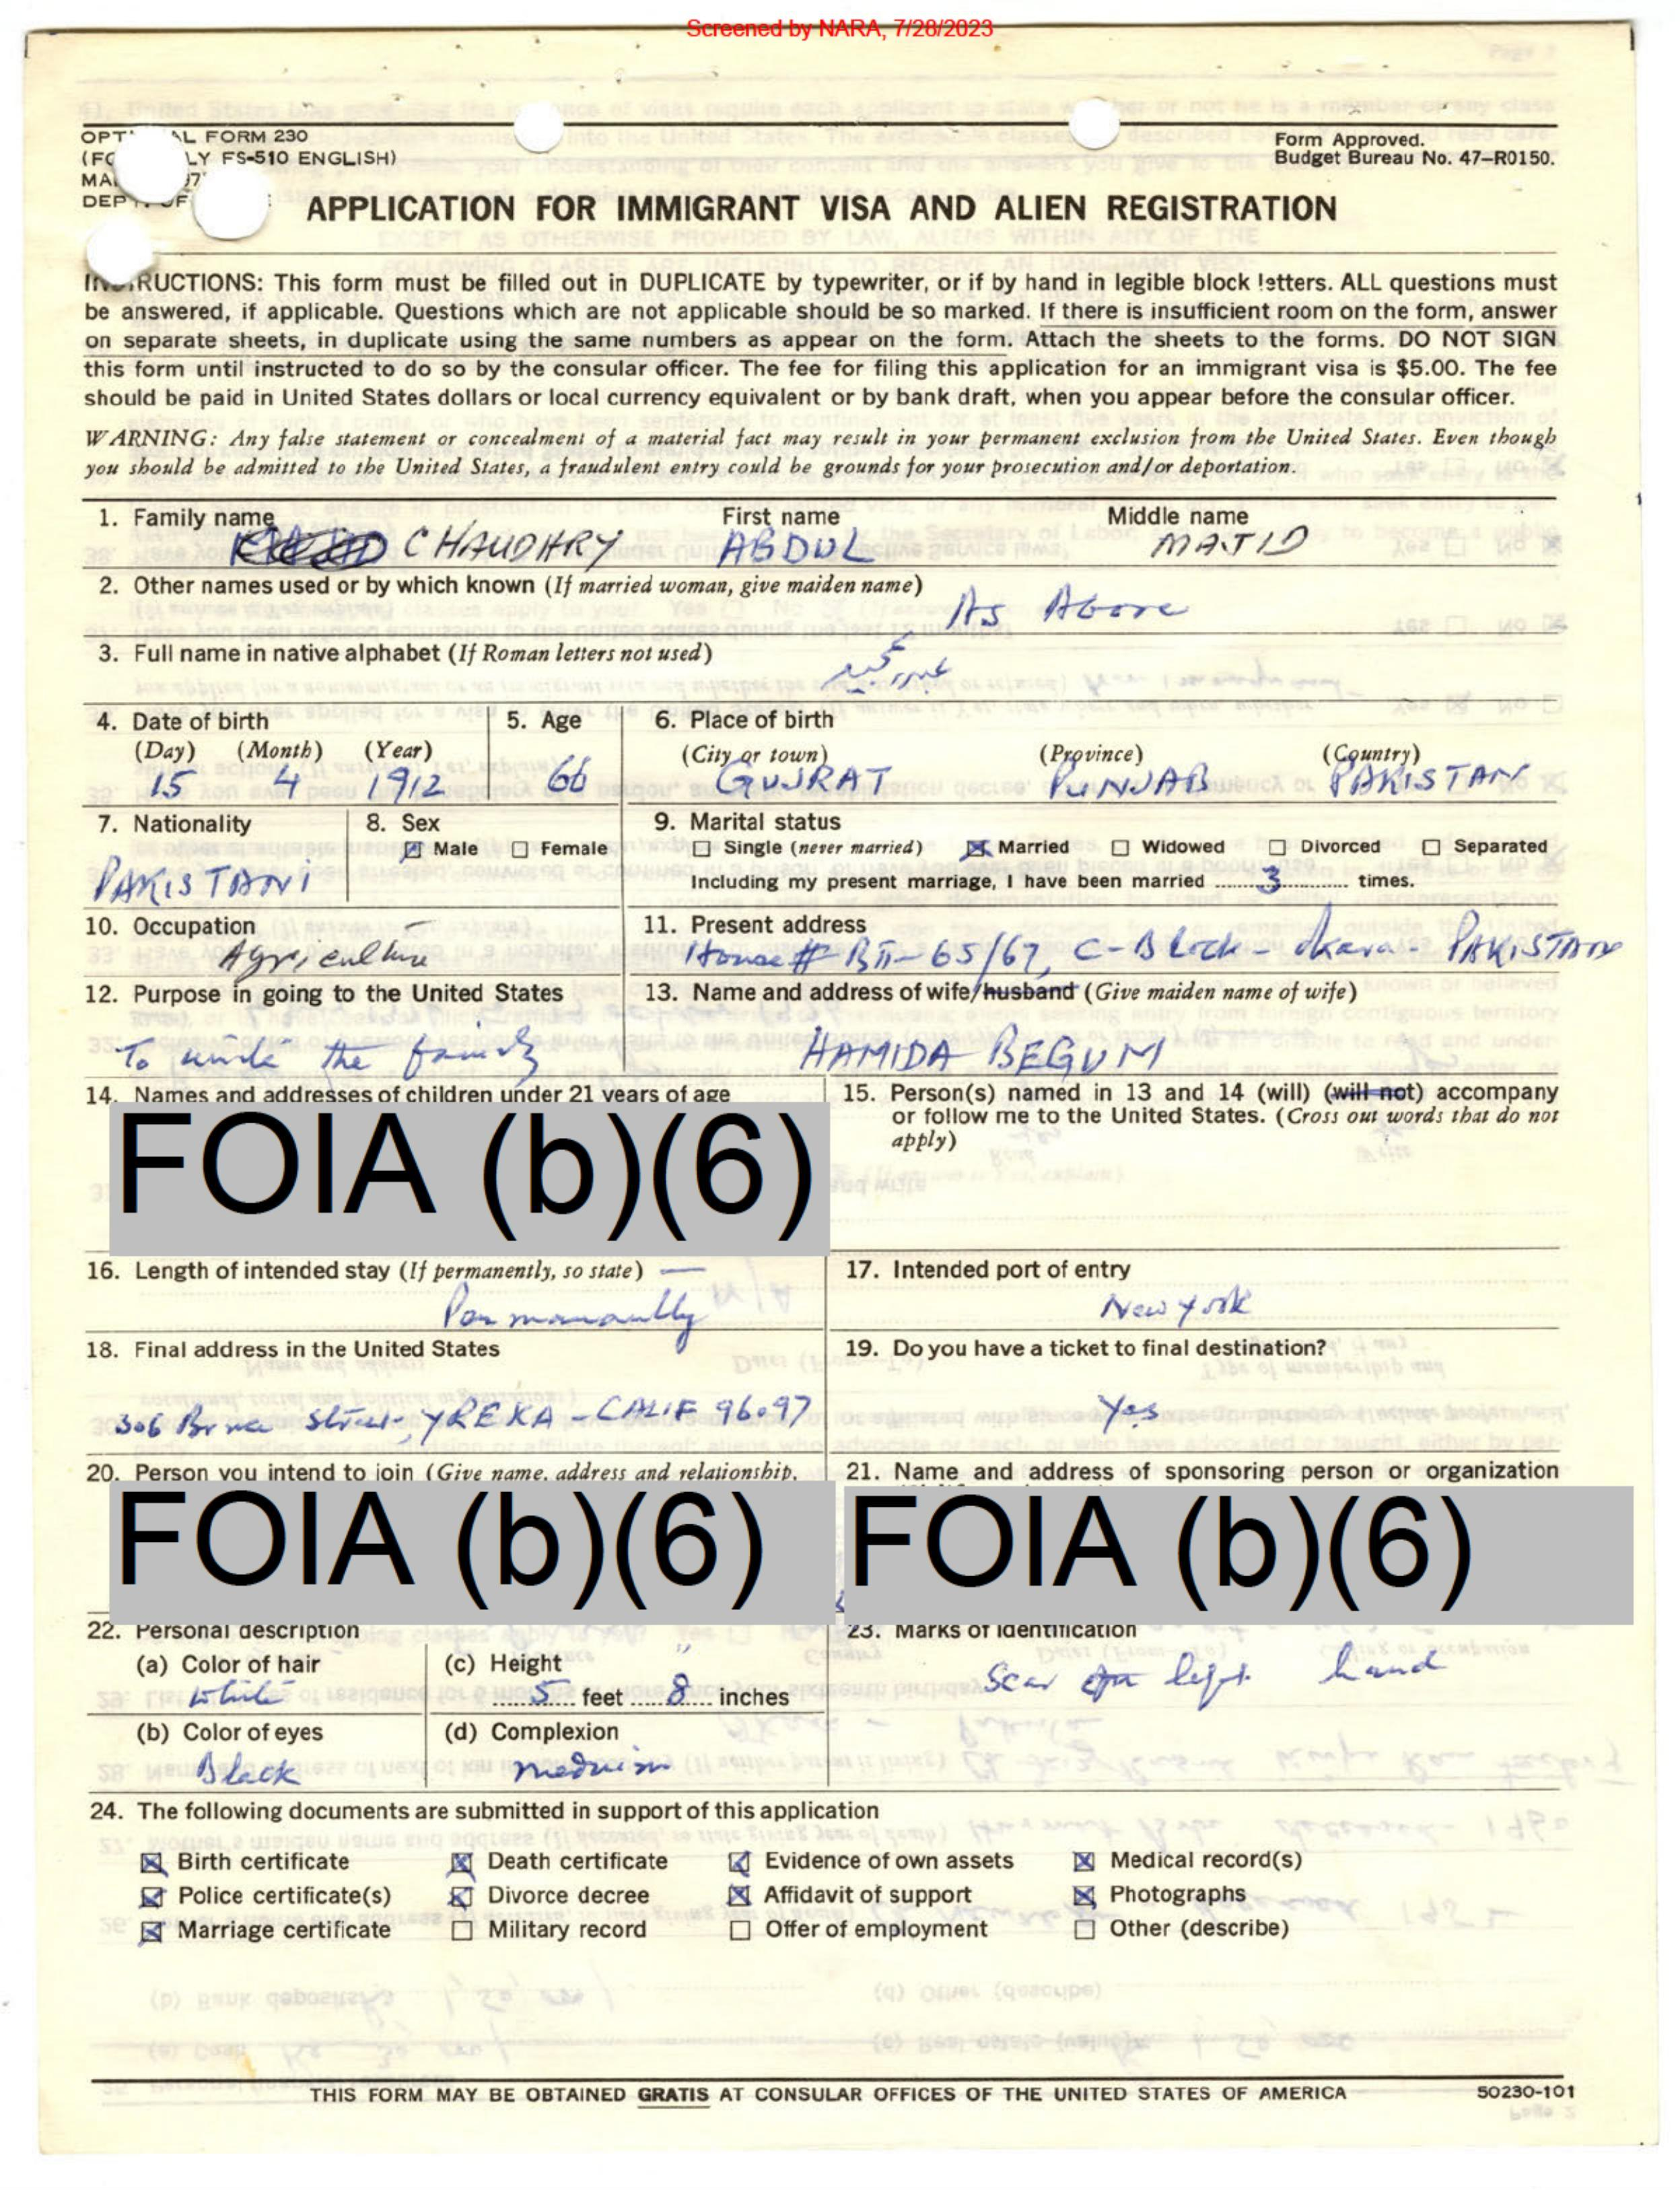 Screened by NARA, 7/28/2023
OPT L FORM 230
LY FS-510 ENGLISH)
Form Approved.
Budget Bureau No. 47-R0150.
APPLICATION FOR IMMIGRANT VISA AND ALIEN REGISTRATION
INSTRUCTIONS: This form must be filled out in DUPLICATE by typewriter, or if by hand in legible block letters. ALL questions must
be answered, if applicable. Questions which are not applicable should be so marked. If there is insufficient room on the form, answer
on separate sheets, in duplicate using the same numbers as appear on the form. Attach the sheets to the forms. DO NOT SIGN
this form until instructed to do so by the consular officer. The fee for filing this application for an immigrant visa is $5.00. The fee
should be paid in United States dollars or local currency equivalent or by bank draft, when you appear before the consular officer.
WARNING: Any false statement or concealment of a material fact may result in your permanent exclusion from the United States. Even though
you should be admitted to the United States, a fraudulent entry could be grounds for your prosecution and/or deportation.
1. Family name First name Middle name
CHAUDHRY ABDUL MAJID
2. Other names used or by which known (If married woman, give maiden name)
As Above
3. Full name in native alphabet (If Roman letters not used)
4. Date of birth 5. Age 6. Place of birth
(Day) (Month) (Year) (City or town) (Province) (Country)
15 4 1912 66 GUJRAT PUNJAB PAKISTAN
7. Nationality 8. Sex 9. Marital status
Male Female Single (never married) Married Widowed Divorced Separated
PAKISTANI Including my present marriage, I have been married 3 times.
10. Occupation 11. Present address
Agriculture House # BII-65/67, C-Block - Okara - PAKISTAN
12. Purpose in going to the United States 13. Name and address of wife/husband (Give maiden name of wife)
To unite the family HAMIDA BEGUM
14. Names and addresses of children under 21 years of age 15. Person(s) named in 13 and 14 (will) (will not) accompany
or follow me to the United States. (Cross out words that do not
apply)
FOIA (b)(6)
16. Length of intended stay (If permanently, so state) 17. Intended port of entry
Permanantly New York
18. Final address in the United States 19. Do you have a ticket to final destination?
306 Bruce Street, YREKA - CALIF 96097 Yes
20. Person you intend to join (Give name, address and relationship, 21. Name and address of sponsoring person or organization
FOIA (b)(6) FOIA (b)(6)
22. Personal description 23. Marks of identification
(a) Color of hair (c) Height Scar on left hand
White 5 feet 8 inches
(b) Color of eyes (d) Complexion
Black medium
24. The following documents are submitted in support of this application
Birth certificate Death certificate Evidence of own assets Medical record(s)
Police certificate(s) Divorce decree Affidavit of support Photographs
Marriage certificate Military record Offer of employment Other (describe)
THIS FORM MAY BE OBTAINED GRATIS AT CONSULAR OFFICES OF THE UNITED STATES OF AMERICA 50230-101